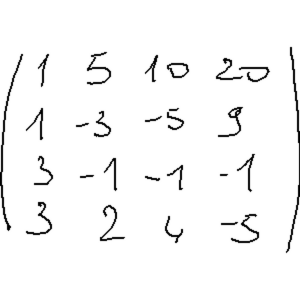 1 5 10 20
1 -3 -5 9
3 -1 -1 -1
3 2 4 -5